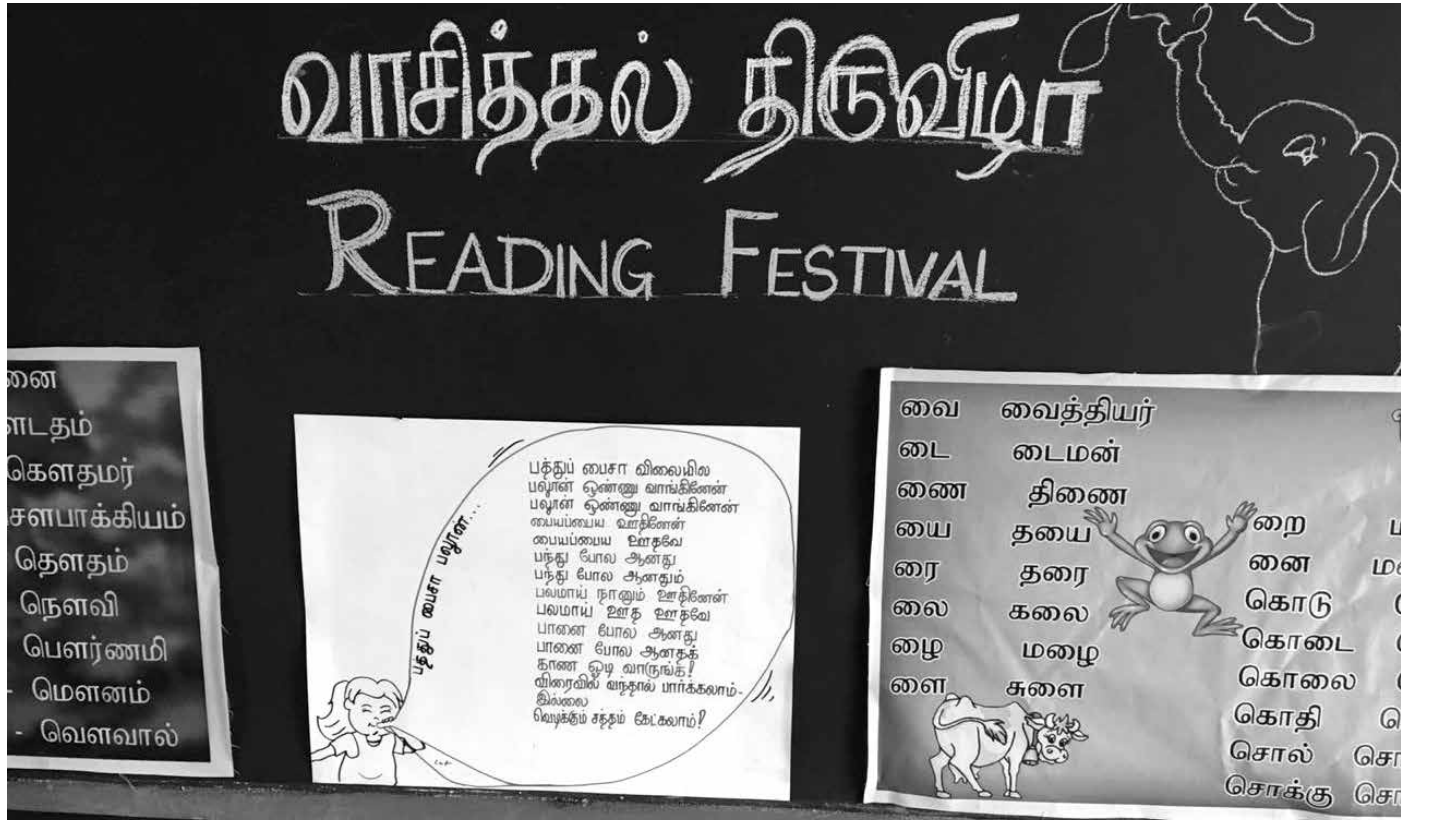 வாசித்தல் திருவிழா
READING FESTIVAL
னை
கௌதமர்
தௌதம்
நௌவி
பௌர்ணமி
- மௌனம்
- வௌவால்
பத்துப் பைசா பலூன்...
பத்துப் பைசா விலையில
பலூன் ஒண்ணு வாங்கினேன்
பலூன் ஒண்ணு வாங்கினேன்
பையப்பைய ஊதினேன்
பையப்பைய ஊதவே
பந்து போல ஆனது
பந்து போல ஆனதும்
பலமாய் நானும் ஊதினேன்
பலமாய் ஊத ஊதவே
பானை போல ஆனது
பானை போல ஆனதக்
காண ஓடி வாருங்க!
விரைவில் வந்தால் பார்க்கலாம்-
இல்லை
வெடிக்கும் சத்தம் கேட்கலாம்!
வை வைத்தியர்
டை டைமன்
ணை திணை
யை தயை
ரை தரை
லை கலை
ழை மழை
ளை சுளை
றை
னை
கொடு
கொடை
கொலை
கொதி
சொல்
சொக்கு